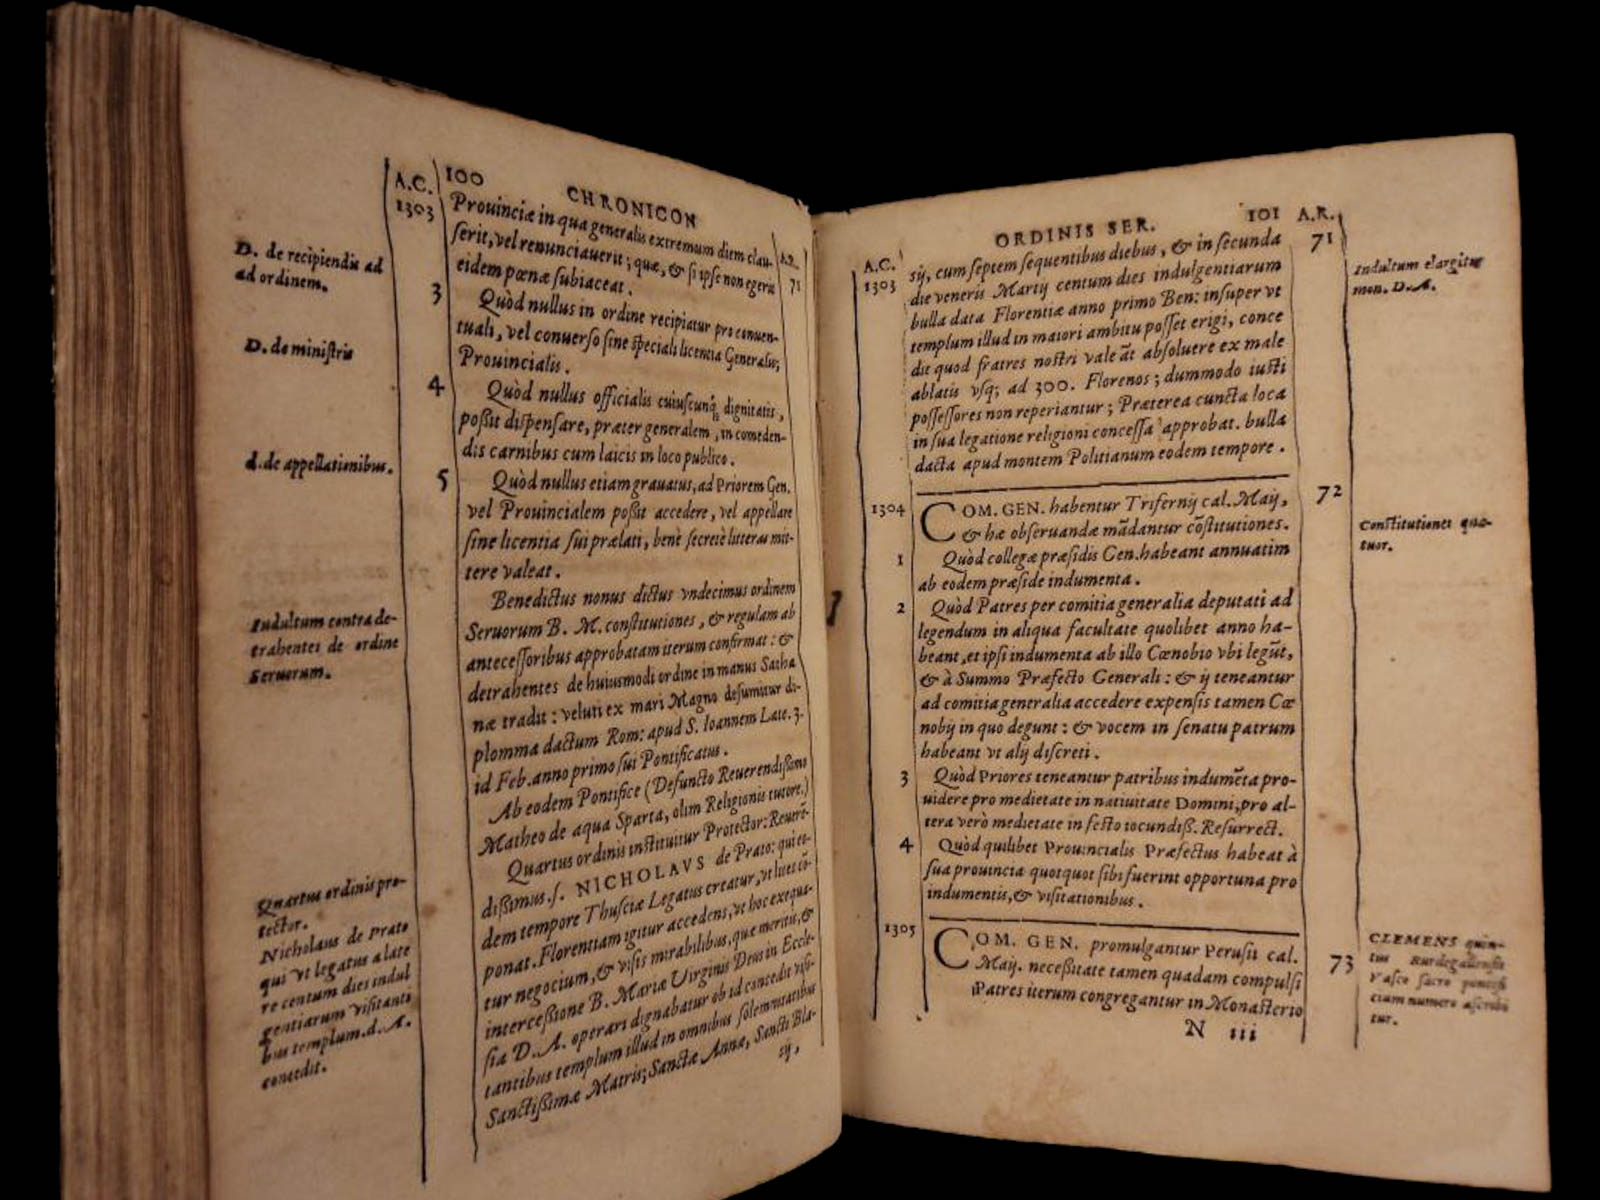 A.C. 100 CHRONICON A.R.
1303 71
Prouinciæ in qua generalis extremum diem clau-
serit, vel renunciauerit; quæ, & si ipse non egerit
eidem pœnæ subiaceat.
D. de recipiendis ad
ad ordinem.
3 Quòd nullus in ordine recipiatur pro conuen-
tuali, vel conuerso sine speciali licentia Generalis;
Prouincialis.
D. de ministris
4 Quòd nullus officialis cuiuscunq; dignitatis,
possit dispensare, præter generalem, in comeden-
dis carnibus cum laicis in loco publico.
d. de appellationibus.
5 Quòd nullus etiam grauatus, ad Priorem Gen.
vel Prouincialem possit accedere, vel appellare
sine licentia sui prælati, benè secretè litteras mit-
tere valeat.
Indultum contra de-
trahentes de ordine
Seruorum.
Benedictus nonus dictus vndecimus ordinem
Seruorum B. M. constitutiones, & regulam ab
antecessoribus approbatam iterum confirmat: &
detrahentes de huiusmodi ordine in manus Satha
næ tradit: veluti ex mari Magno desumitur di-
plomma dactum Rom: apud S. Ioannem Late. 3.
id Feb. anno primo sui Pontificatus.
Ab eodem Pontifice (Defuncto Reuerendissimo
Matheo de aqua Sparta, olim Religionis tutore.)
Quartus ordinis pro-
tector.
Nicholaus de Prato
qui vt legatus a late
re centum dies indul
gentiarum visitanti
bus templum. d. A.
concedit.
Quartus ordinis instituitur Protector: Reuerē-
dissimus. s. NICHOLAVS de Prato: qui eo-
dem tempore Thusciæ Legatus creatur, vt lites cō-
ponat. Florentiam igitur accedens, vt hoc exequa-
tur negocium, & visis mirabilibus, quæ meritis, &
intercessione B. Mariæ Virginis Deus in Eccle-
sia D. A. operari dignabatur ob id concedit visi-
tantibus templum illud in omnibus solemnitatibus
Sanctissimæ Matris; Sanctæ Annæ, Sancti Bla-
sij,
ORDINIS SER. 101 A.R.
A.C. 71
1303
Indultum elargitur
mon. D. A.
sij, cum septem sequentibus diebus, & in secunda
die veneris Martij centum dies indulgentiarum
bulla data Florentiæ anno primo Ben: insuper vt
templum illud in maiori ambitu posset erigi, conce
dit quod fratres nostri valeāt absoluere ex male
ablatis vsq; ad 300. Florenos; dummodo iusti
possessores non reperiantur; Præterea cuncta loca
in sua legatione religioni concessa approbat. bulla
dacta apud montem Politianum eodem tempore.
1304 72
Constitutiones qua-
tuor.
COM. GEN. habentur Trifernij cal. Maij,
& hæ obseruandæ mādantur cōstitutiones.
1 Quòd collegæ præsidis Gen. habeant annuatim
ab eodem præside indumenta.
2 Quòd Patres per comitia generalia deputati ad
legendum in aliqua facultate quolibet anno ha-
beant, et ipsi indumenta ab illo Cœnobio vbi legūt,
& à Summo Præfecto Generali: & ij teneantur
ad comitia generalia accedere expensis tamen Cœ
nobij in quo degunt: & vocem in senatu patrum
habeant vt alij discreti.
3 Quòd Priores teneantur patribus indumēta pro-
uidere pro medietate in natiuitate Domini, pro al-
tera verò medietate in festo iocundiss. Resurrect.
4 Quòd quilibet Prouincialis Præfectus habeat à
sua prouincia quotquot sibi fuerint opportuna pro
indumentis, & visitationibus.
1305 73
COM. GEN. promulgantur Perusii cal.
Maij. necessitate tamen quadam compulsi
Patres iterum congregantur in Monasterio
CLEMENS quin-
tus Burdegallensis
Vasco sacro pontifi
cium numero ascribi
tur.
N iii